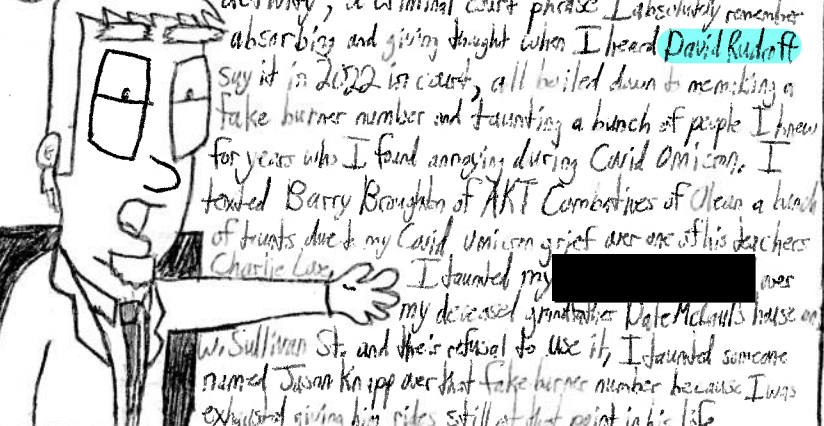 activity, a criminal court phrase I absolutely remember
absorbing and giving thought when I heard David Rudroff
say it in 2022 in court, all boiled down to me making a
fake burner number and taunting a bunch of people I knew
for years who I found annoying during Covid Omicron. I
texted Barry Broughton of AKT Combatives of Olean a bunch
of taunts due to my Covid Omicron grief over one of his teachers
Charlie Luxe. I taunted my over
my deceased grandfather Dale McCaul's house on
W. Sullivan St. and their refusal to use it, I taunted someone
named Jason Knapp over that fake burner number because I was
exhausted giving him rides still at that point in his life